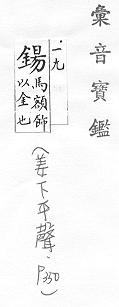 彙音寶鑑
一九
鍚
馬額飾
以金也
（姜下平聲．P350）